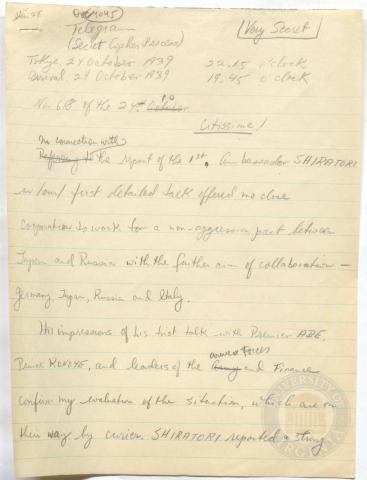 Telegram
(Secret Cipher Process)
[Very Secret]
Tokyo, 24 October 1939 22.15 o'clock
Arrival, 24 October 1939 19.45 o'clock
No. 68 of the 24th 10
October
Citissime!
In connection with
Referring to the report of the 1st, Ambassador SHIRATORI
in our first detailed talk offered me close
cooperation to work for a non-aggression pact between
Japan and Russia with the further aim of collaboration –
Germany, Japan, Russia and Italy.
His impressions of his first talk with Premier ABE,
Prince KONOYE, and leaders of the Army and Finance
armed forces
confirm my evaluation of the situation, which are on
their way by courier. SHIRATORI reported a strong